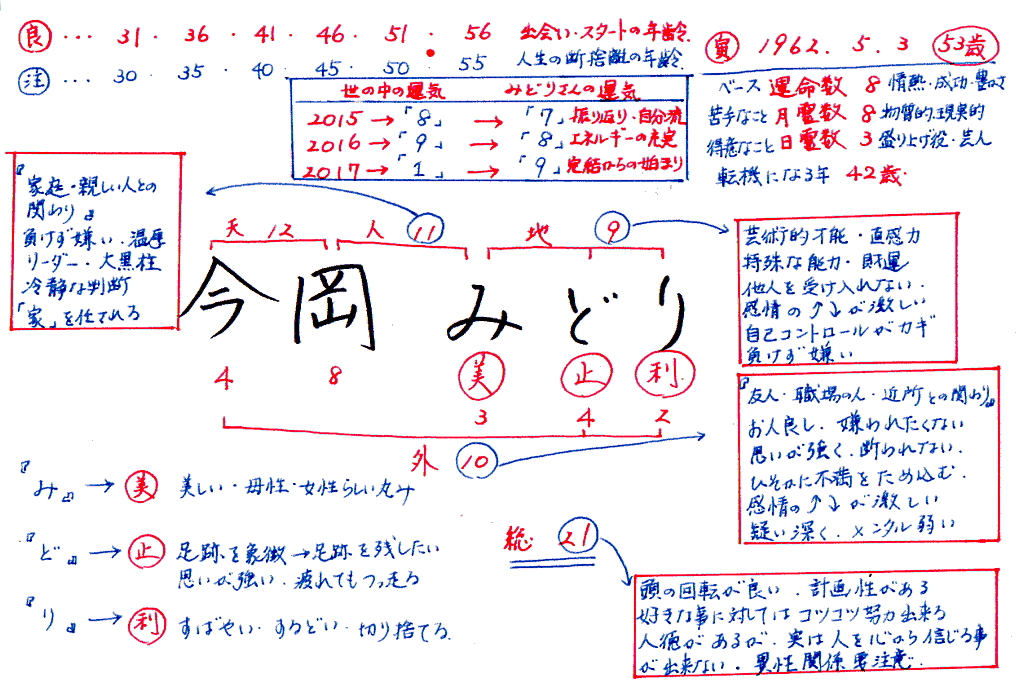 良 ... 31 . 36 . 41 . 46 . 51 . 56 出会い・スタートの年齢.
注 ... 30 . 35 . 40 . 45 . 50 . 55 人生の断捨離の年齢.
寅 1962. 5. 3 53歳
ベース 運命数 8 情熱・成功・豊かさ
苦手なこと 月霊数 8 物質的、現実的
得意なこと 日霊数 3 盛り上げ役・芸人
転機になる年 42歳.
世の中の運気 みどりさんの運気
2015 → 「8」 → 「7」振り返り・自分流
2016 → 「9」 → 「8」エネルギーの充実
2017 → 「1」 → 「9」完結からの始まり
『家庭・親しい人との
関わり』
負けず嫌い・温厚
リーダー・大黒柱
冷静な判断
「家」を任される
天 12 人 11 地 9
今岡 みどり
4 8 美 止 利
3 4 2
外 10
芸術的才能・直感力
特殊な能力・財運
他人を受け入れない.
感情の↑↓が激しい
自己コントロールがカギ
負けず嫌い
『友人・職場の人・近所との関わり』
お人良し. 嫌われたくない
思いが強く. 断われない.
ひそかに不満をため込む.
感情の↑↓が激しい
疑い深く. メンタル弱い
『み』 → 美 美しい・母性・女性らしい丸み
『ど』 → 止 足跡を象徴→足跡を残したい
思いが強い. 疲れてもつっ走る
『り』 → 利 すばやい・するどい・切り捨てる.
総 21
頭の回転が良い. 計画性がある
好きな事に対してはコツコツ努力出来る
人徳があるが. 実は人を心から信じる事
が出来ない. 異性関係要注意.